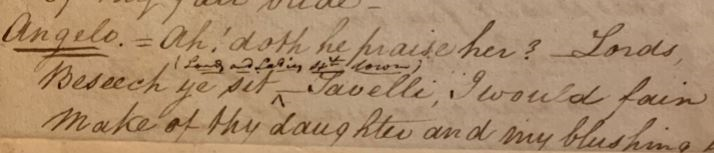 of my fair bride -
Angelo. = Ah! doth he praise her? _ Lords,
(Lords and Ladies sit down)
Beseech ye sit _ Tavelli, I would fain
Make of thy daughter and my blushing